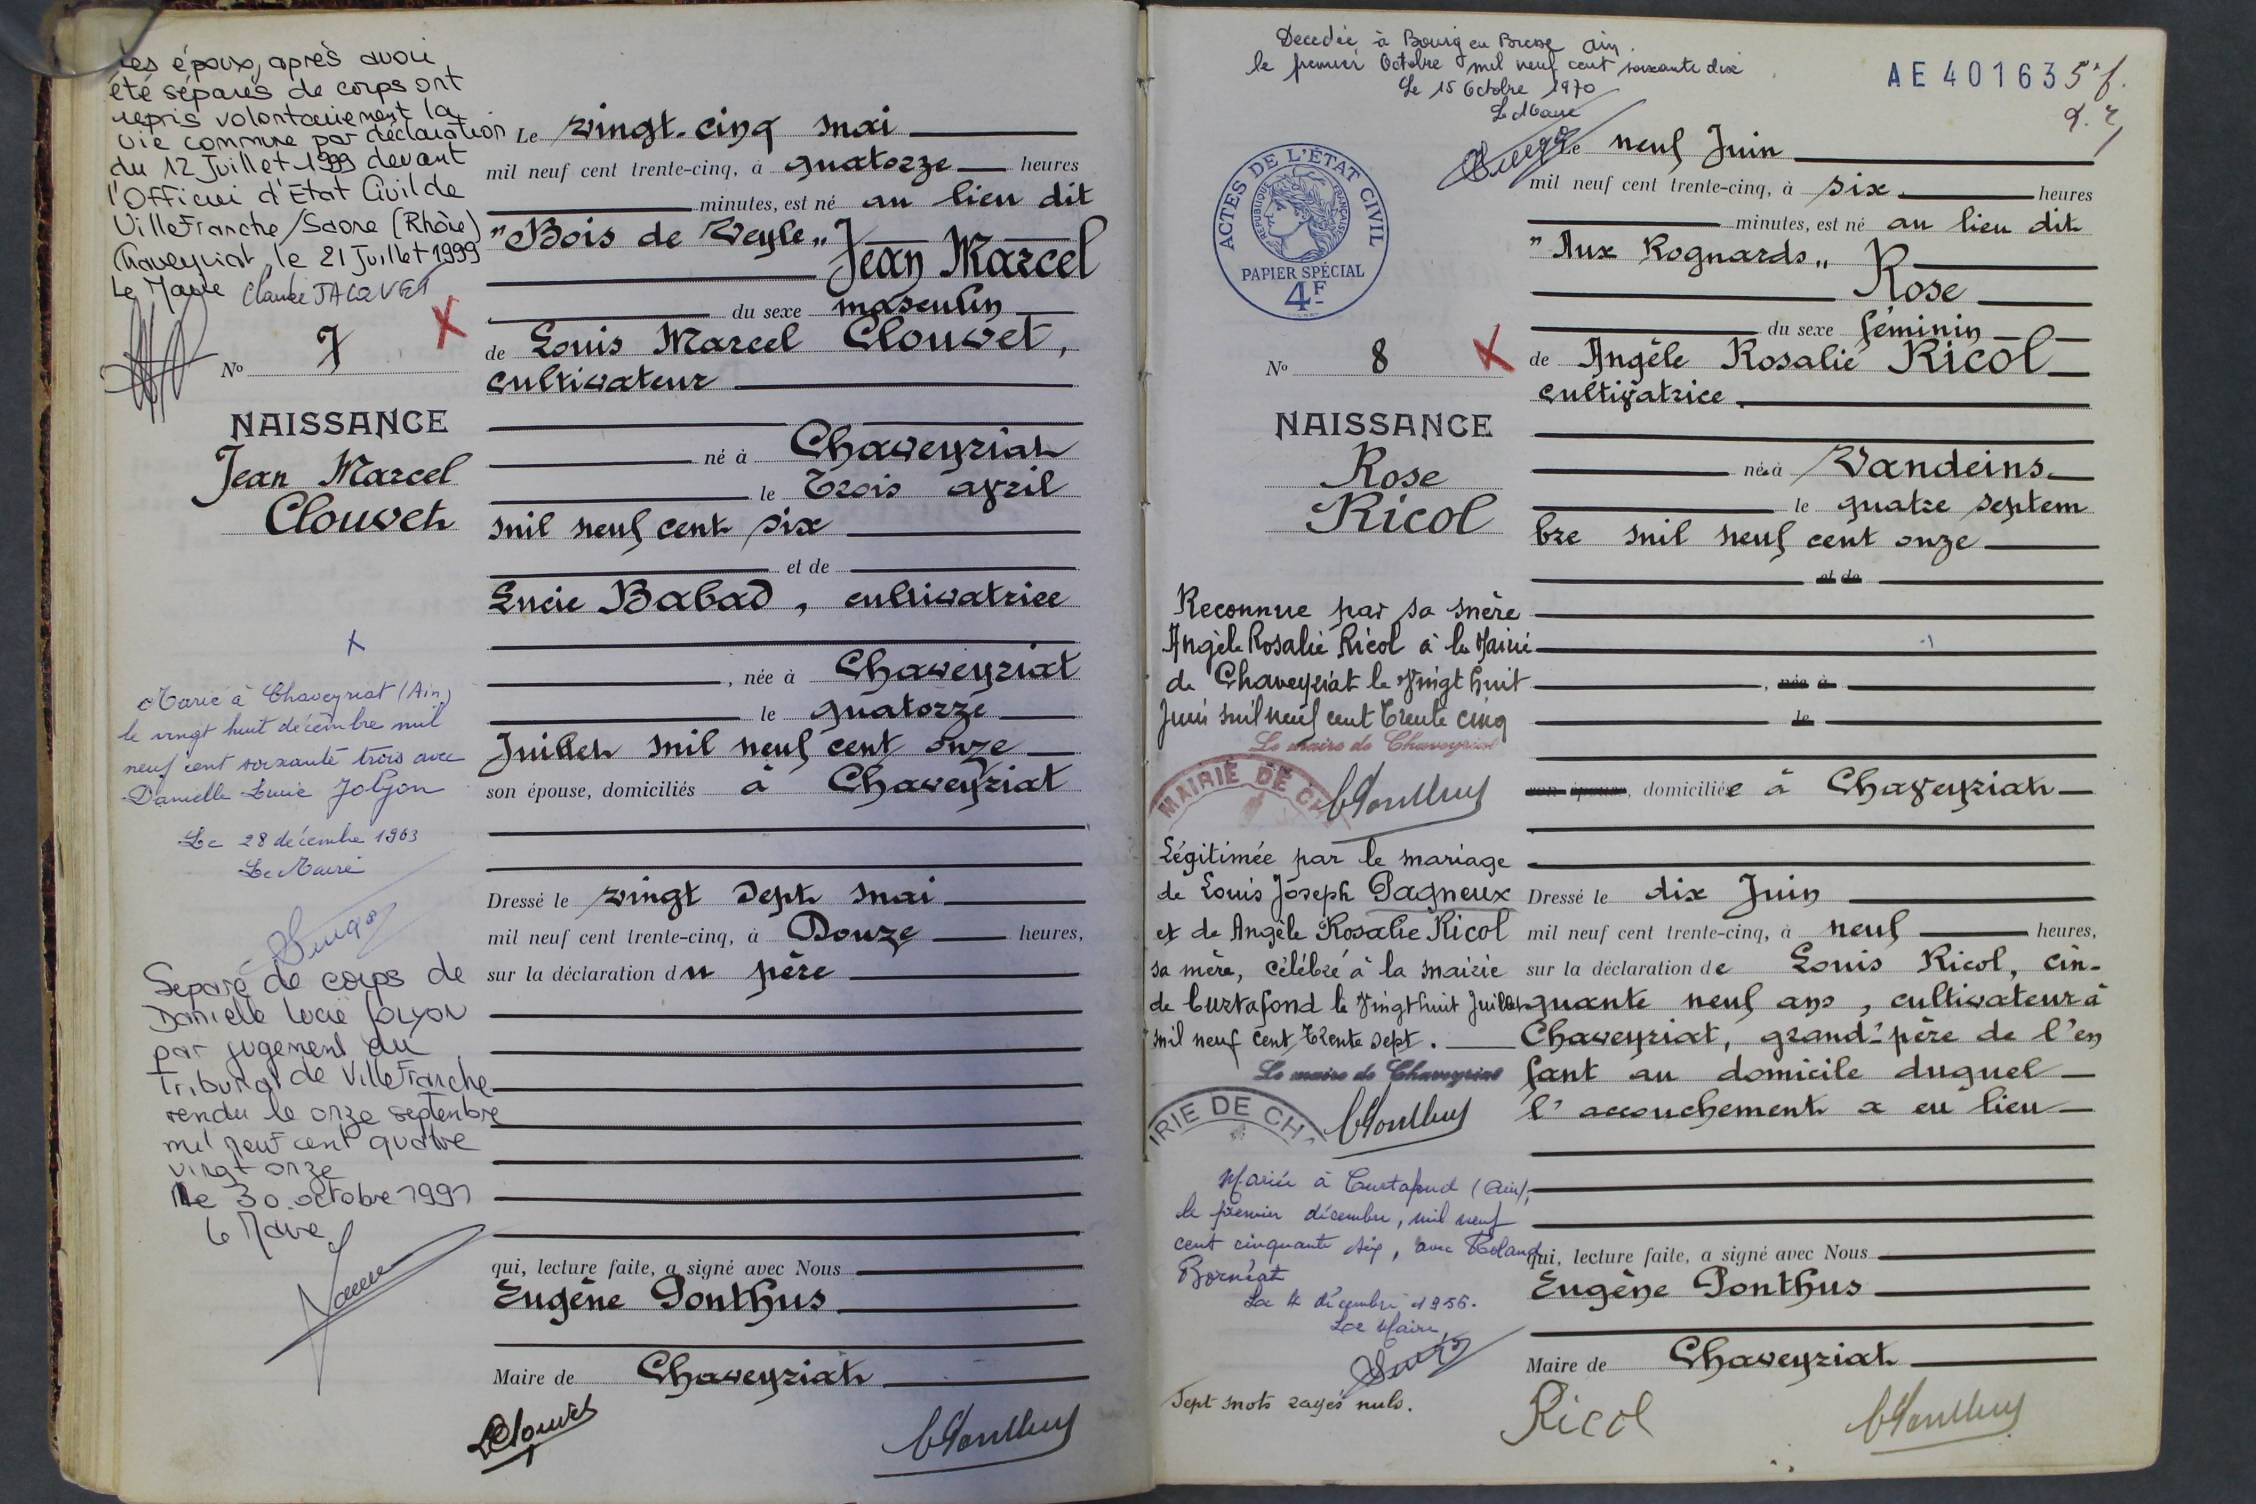 Les époux, après avoir
été séparés de corps ont
repris volontairement la
vie commune par déclaration
du 12 Juillet 1999 devant
l'Officier d'Etat Civil de
Villefranche/Saone (Rhône)
Chaveyriat, le 21 Juillet 1999
Le Maire Claude JACQUET
No 7
NAISSANCE
Jean Marcel
Clouvet
X
Marié à Chaveyriat (Ain)
le vingt huit décembre mil
neuf cent soixante trois avec
Danielle Lucie Jolyon
Le 28 décembre 1963
Le Maire
Séparé de corps de
Danielle Lucie Jolyon
par jugement du
Tribunal de Villefranche
rendu le onze septembre
mil neuf cent quatre
vingt onze
le 30 octobre 1991
le Maire
Le vingt-cinq mai
mil neuf cent trente-cinq, à quatorze heures
minutes, est né au lieu dit
"Bois de Veyle" Jean Marcel
du sexe masculin
de Louis Marcel Clouvet,
cultivateur
né à Chaveyriat
le Trois avril
mil neuf cent six
et de
Lucie Babad, cultivatrice
, née à Chaveyriat
le quatorze
Juillet mil neuf cent onze
son épouse, domiciliés à Chaveyriat
Dressé le vingt sept mai
mil neuf cent trente-cinq, à Douze heures,
sur la déclaration du père
qui, lecture faite, a signé avec Nous
Eugène Ponthus
Maire de Chaveyriat
LClouvet
Décédée à Bourg en Bresse Ain.
le premier Octobre mil neuf cent soixante dix
Le 15 Octobre 1970
Le Maire
AE 40163
ACTES DE L'ÉTAT CIVIL
RÉPUBLIQUE FRANÇAISE
PAPIER SPÉCIAL
4F
No 8
NAISSANCE
Rose
Ricol
Reconnue par sa mère
Angèle Rosalie Ricol à la Mairie
de Chaveyriat le Vingt huit
Juin mil neuf cent Trente cinq
Le maire de Chaveyriat
MAIRIE DE CH
Légitimée par le mariage
de Louis Joseph Pagneux
et de Angèle Rosalie Ricol
sa mère, célébré à la mairie
de Curtafond le Vingt huit Juillet
mil neuf cent Trente sept.
Le maire de Chaveyriat
IRIE DE CHA
Mariée à Curtafond (Ain),
le premier décembre, mil neuf
cent cinquante six, avec Roland
Bornéat
Le 4 décembre 1956.
Le Maire,
Sept mots rayés nuls.
Le neuf Juin
mil neuf cent trente-cinq, à six heures
minutes, est né au lieu dit
"Aux Rognards" Rose
du sexe féminin
de Angèle Rosalie Ricol
cultivatrice
née à Vandeins
le quatre septem
bre mil neuf cent onze
et de
, née à
le
son épouse, domiciliée à Chaveyriat
Dressé le dix Juin
mil neuf cent trente-cinq, à neuf heures,
sur la déclaration de Louis Ricol, cin-
quante neuf ans, cultivateur à
Chaveyriat, grand-père de l'en
fant au domicile duquel
l'accouchement a eu lieu
qui, lecture faite, a signé avec Nous
Eugène Ponthus
Maire de Chaveyriat
Ricol